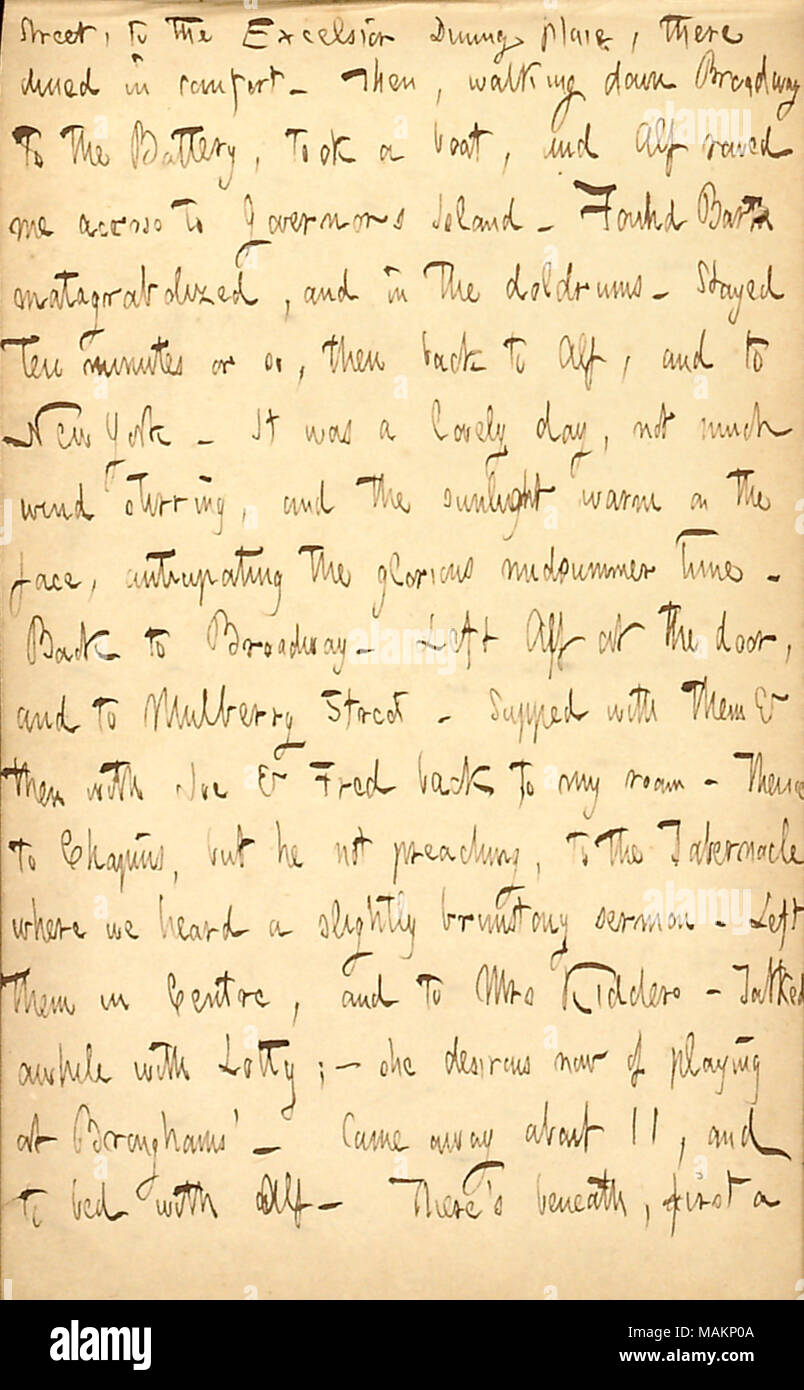 Street, to the Excelsior Dining place, there
dined in comfort – Then, walking down Broadway
to the Battery, took a boat, and Alf rowed
me across to Governors Island – Found Barth
matagrabolized, and in the doldrums – Stayed
ten minutes or so, then back to Alf, and to
New York – It was a lovely day, not much
wind stirring, and the sunlight warm on the
face, anticipating the glorious midsummer time –
Back to Broadway – Left Alf at the door,
and to Mulberry Street – Supped with them &
then with Joe & Fred back to my room – Thence
to Chapins, but he not preaching, to the Tabernacle
where we heard a slightly brimstony sermon – Left
them in Centre, and to Mrs Kidders – Talked
awhile with Lotty; – she desirous now of playing
at Broughams' – Came away about 11, and
to bed with Alf – There's beneath, first a
alamy
Image ID: MAKP0A
www.alamy.com